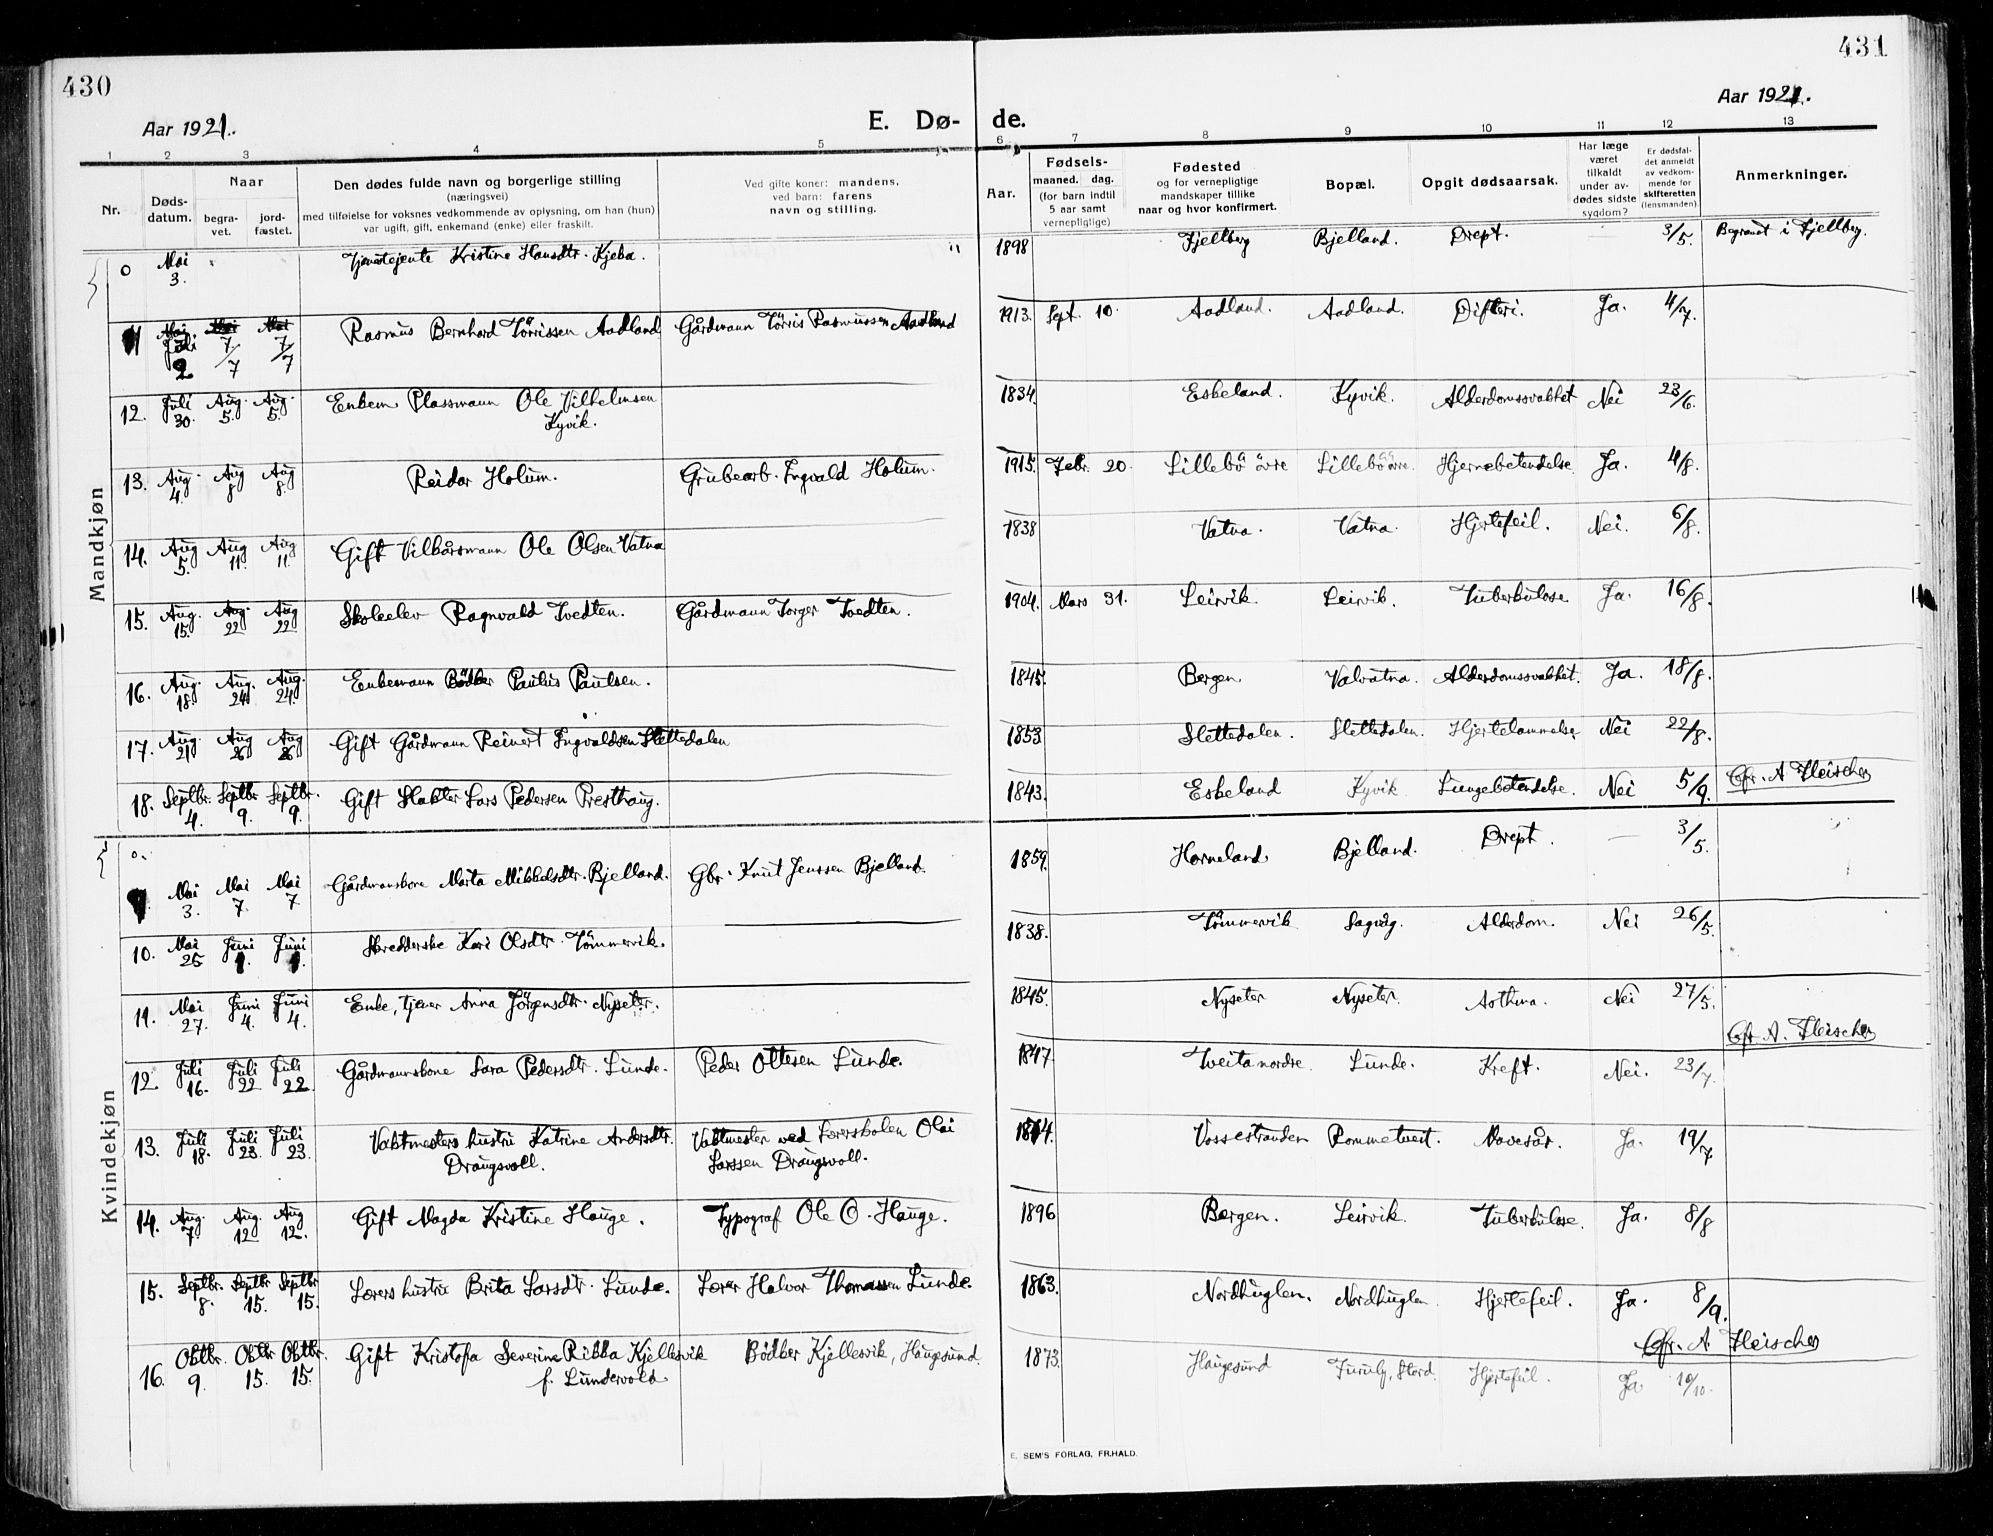 430
431
Aar 1921.
E. Dø- de.
Aar 1921.
1 2 3 4 5 6 7 8 9 10 11 12 13
Nr.
Døds-
datum.
Naar
begra-
vet.
jord-
fæstet.
Den dødes fulde navn og borgerlige stilling
(næringsvei)
med tilføielse for voksnes vedkommende av oplysning, om han (hun)
var ugift, gift, enkemand (enke) eller fraskilt.
Ved gifte koner: mandens,
ved barn: farens
navn og stilling.
Aar.
Fødsels-
maaned. dag.
(for barn indtil
5 aar samt
vernepligtige)
Fødested
og for vernepligtige
mandskaper tillike
naar og hvor konfirmert.
Bopæl.
Opgit dødsaarsak.
Har læge
været
tilkaldt
under av-
dødes sidste
sygdom?
Er dødsfal-
det anmeldt
av vedkom-
mende for
skifteretten
(lensmanden)
Anmerkninger.
Mandkjøn
0 Mai 3. Tjenestejente Kristine Hansdtr. Kjeba. " 1898 Fjellberg Bjelland. Drept. — 3/5. Begravet i Fjellberg.
11 Juli 2 7/7 7/7 Rasmus Bernhard Törrissen Aadland Gårdmann Törris Rasmussen Aadland 1913. Sept. 10. Aadland. Aadland. Difteri. Ja. 4/7.
12. Juli 30. Aug. 5. Aug. 5. Enkem. Plassmann Ole Vilhelmsen 1834 Eskeland. Kyvik. Alderdomssvakhet Nei 23/6.
Kyvik.
13. Aug. 4. Aug 8 Aug 8. Reidar Holum. Grubearb. Ingvald Holum. 1915. Febr. 20. Lillebö övre Lillebö övre. Hjernebetendelse Ja. 4/8.
14. Aug 5. Aug 11. Aug 11. Gift Vilkårsmann Ole Olsen Vatna 1838 Vatna. Vatna. Hjertefeil. Nei. 6/8.
15. Aug. 15. Aug. 22 Aug 22 Skoleelev Ragnvald Tvedten. Gårdmann Torger Tvedten. 1904. Mars 31. Leirvik. Leirvik. Tuberkulose Ja. 16/8.
16. Aug. 18. Aug. 24. Aug. 24. Enkemann Bödker Paulus Paulsen. 1845. Bergen. Valvatna. Alderdomssvakhet. Ja. 18/8.
17. Aug. 21. Aug 26 Aug 26 Gift Gårdmann Reinert Ingvaldsen Slettedalen 1853 Slettedalen. Slettedalen. Hjertelammelse Nei 22/8.
18. Septbr. 4. Septbr 9. Septbr. 9. Gift Slakter Lars Pedersen Presthaug. 1843. Eskeland Kyvik Lungebetendelse. Nei 5/9. Cfr. A Fleischer
Kvindekjøn
0.
9. Mai 3. Mai 7. Mai 7 Gårdmanskone Marta Mikkelsdtr. Bjelland. Gbr. Knut Jenssen Bjelland. 1859. Horneland. Bjelland. Drept. — 3/5.
10. Mai 25 Juni 1. Juni 1. Skredderske Kari Olsdtr. Tömmervik. 1838. Tömmervik Sagvåg. Alderdom. Nei 26/5.
11. Mai 27. Juni 4. Juni 4. Enke, tjener Anna Jörgensdtr. Nyseter. 1845. Nyseter Nyseter. Asthma. Nei 27/5.
Cfr A. Fleischer
12. Juli 16. Juli 22 Juli 22. Gårdmannskone Sara Pedersdtr. Lunde. Peder Ottesen Lunde. 1847 Tveita nordre. Lunde. Kreft. Nei. 23/7.
13. Juli 18. Juli 23. Juli 23. Vaktmesters hustru Katrine Andersdtr. Vaktmester ved Lærerskolen Olai 1874. Vossestranden Rommetveit. Mavesår. Ja. 19/7
Draugsvoll. Larssen Draugsvoll.
14. Aug. 7. Aug. 12 Aug 12. Gift Magda Kristine Hauge. Typograf Ole O. Hauge. 1896 Bergen. Leirvik. Tuberkulose. Ja. 8/8
15. Septbr. 8. Septbr 15. Septbr 15. Lærers hustru Brita Larsdtr. Lunde. Lærer Halvor Thomassen Lunde. 1863. Nordhuglen. Nordhuglen. Hjertefeil. Ja. 8/9.
Cfr. A Fleischer
16. Oktbr. 9. Oktbr 15. Oktbr. 15. Gift Kristofa Severine Rikka Kjellesvik Bödker Kjellesvik, Haugesund. 1873. Haugesund Furuly, Stord. Hjertefeil. Ja 10/10.
f. Lundervold
E. SEM'S FORLAG, FR.HALD.